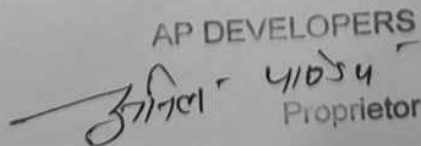 AP DEVELOPERS
अनिल पाण्डेय
Proprietor